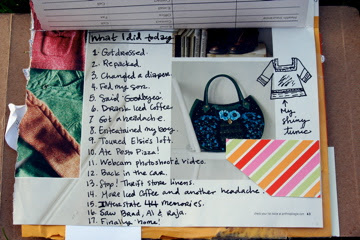 What I did today
1. Got dressed.
2. Repacked.
3. Changed a diaper.
4. Fed my son.
5. Said "Goodbyes"
6. Drank Iced Coffee.
7 Got a headache.
8. Entertained my boy.
9. Toured Elsie's loft.
10. Ate Pesto Pizza!
11. Webcam photoshoot & video.
12. Back in the car.
13. Stop! Thrift store linens.
14. More Iced Coffee and another headache.
15. Interstate 44 memories.
16. Saw Brad, Al & Raja.
17. Finally home!
My
shiny
tunic